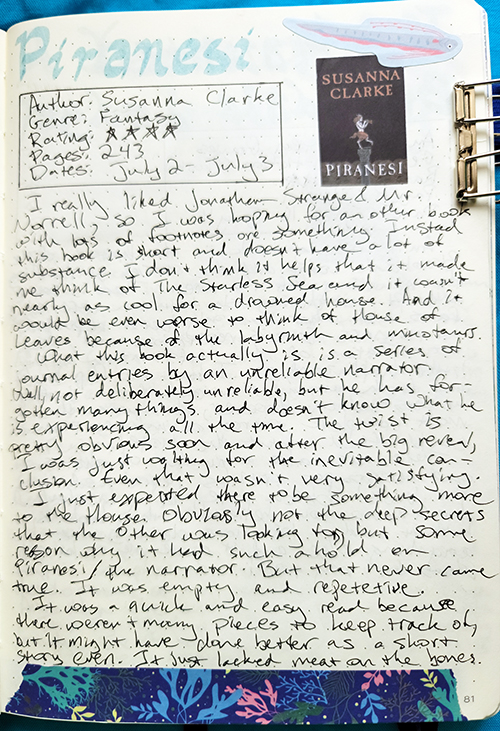 Piranesi
Author: Susanna Clarke
Genre: Fantasy
Rating: ★★★★
Pages: 243
Dates: July 2 - July 3
SUSANNA
CLARKE
PIRANESI
I really liked Jonathan Strange & Mr.
Norrell, so I was hoping for an other book
with lots of footnotes are something. Instead
this book is short and doesn't have a lot of
substance. I don't think it helps that it made
me think of The Starless Sea and it wasn't
nearly as cool for a drowned house. And it
would be even worse to think of House of
Leaves because of the labyrinth and minotaurs.
What this book actually is is a series of
journal entries by an unreliable narrator.
Well, not deliberately unreliable, but he has for-
gotten many things and doesn't know what he
is experiencing all the time. The twist is
pretty obvious soon and after the big reveal,
I was just waiting for the inevitable con-
clusion. Even that wasn't very satisfying.
I just expected there to be something more
to the House. Obviously not the deep secrets
that the Other was looking for, but some
reason why it had such a hold on
Piranesi/the narrator. But that never came
true. It was empty and repetetive.
It was a quick and easy read because
there weren't many pieces to keep track of,
but it might have done better as a short
story even. It just lacked meat on the bones.
81